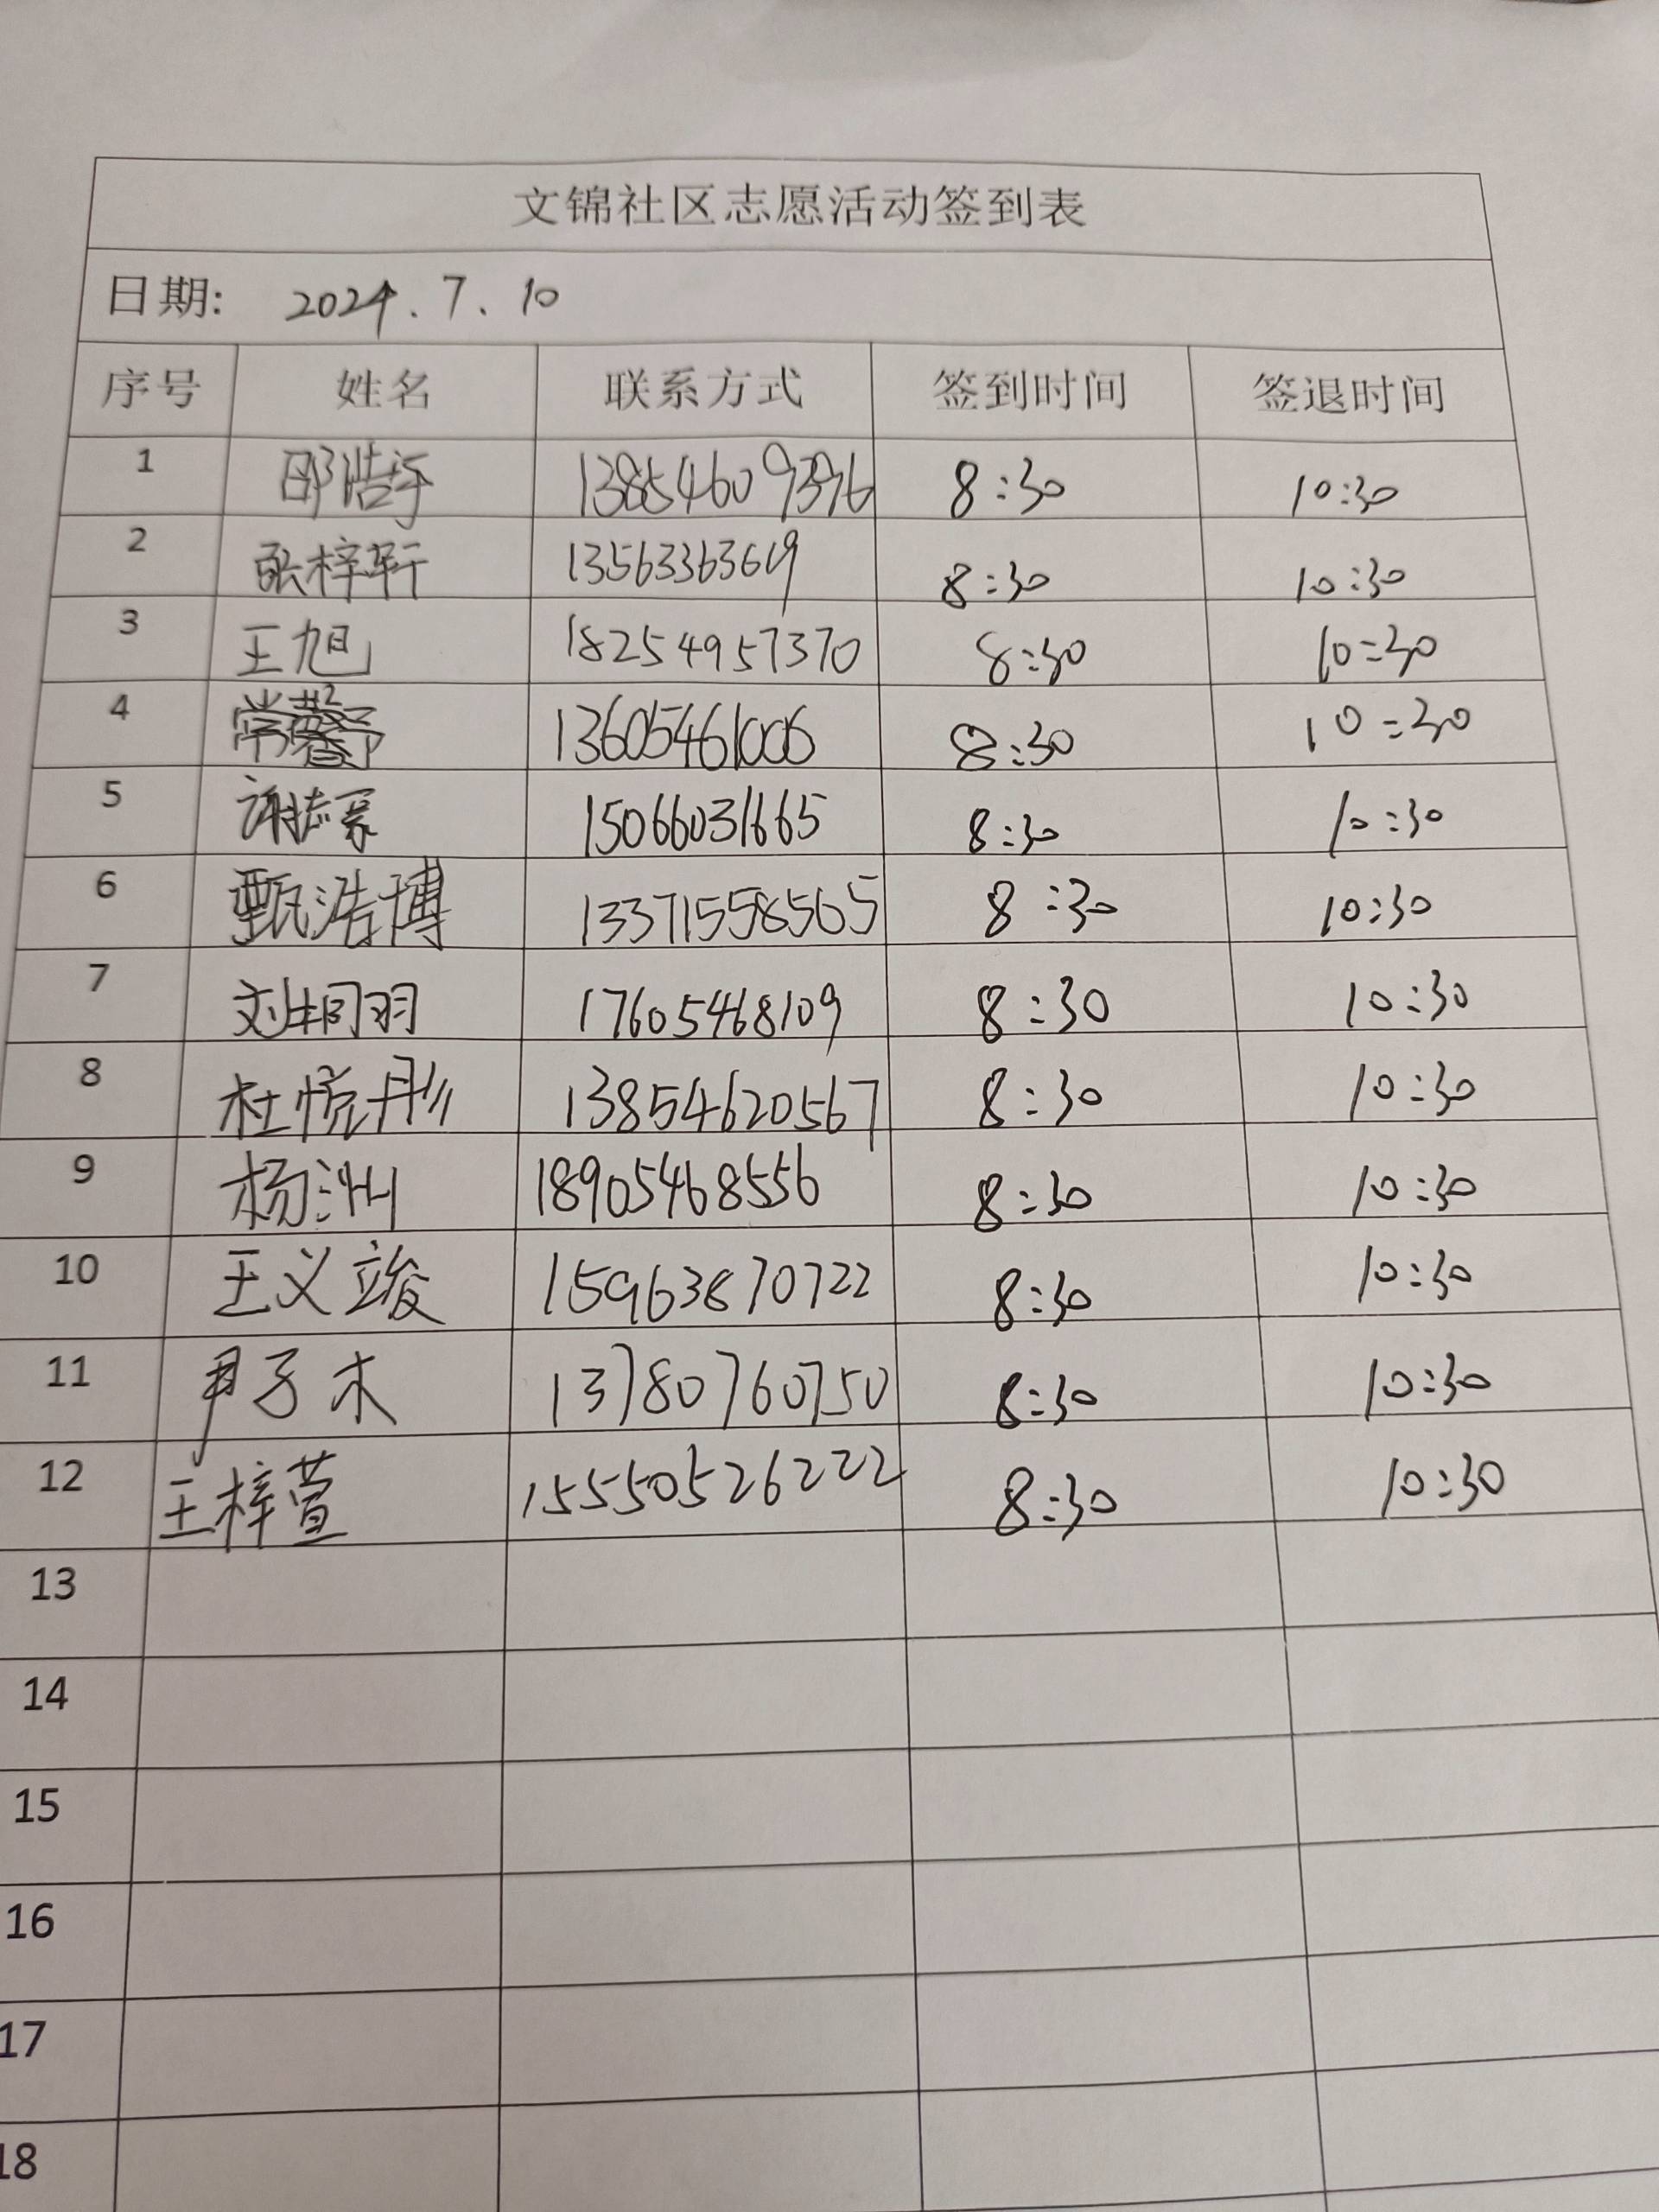 文锦社区志愿活动签到表
日期: 2024.7.10
序号 姓名 联系方式 签到时间 签退时间
1 邵浩宇 13854609396 8:30 10:30
2 张梓轩 13563363619 8:30 10:30
3 王旭 18254957370 8:30 10:30
4 常馨予 13605461006 8:30 10:30
5 15066031665 8:30 10:30
6 甄浩博 13371558565 8:30 10:30
7 刘桐羽 17605468109 8:30 10:30
8 杜悦彤 13854620567 8:30 10:30
9 杨洲 18905468556 8:30 10:30
10 王义竣 15963870722 8:30 10:30
11 尹子木 13780760750 8:30 10:30
12 王梓萱 15550526222 8:30 10:30
13
14
15
16
17
18